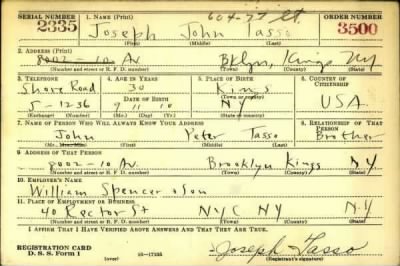 SERIAL NUMBER 1. NAME (Print) 604-77 St. ORDER NUMBER
2335 Joseph John Tasso 3500
(First) (Middle) (Last)
2. ADDRESS (Print)
8002-10 Av. Bklyn, Kings NY
(Number and street or R. F. D. number) (Town) (County) (State)
3. TELEPHONE 4. AGE IN YEARS 5. PLACE OF BIRTH 6. COUNTRY OF CITIZENSHIP
Shore Road 30 Kings
DATE OF BIRTH
5-1236 9 11 10 NY USA
(Exchange) (Number) (Mo.) (Day) (Yr.) (State or country)
7. NAME OF PERSON WHO WILL ALWAYS KNOW YOUR ADDRESS 8. RELATIONSHIP OF THAT PERSON
John Peter Tasso Brother
(First) (Middle) (Last)
9. ADDRESS OF THAT PERSON
8002-10 Av. Brooklyn Kings NY
(Number and street or R. F. D. number) (Town) (County) (State)
10. EMPLOYER'S NAME
William Spencer & Son
11. PLACE OF EMPLOYMENT OR BUSINESS
40 Rector St NYC NY NY
(Number and street or R. F. D. number) (Town) (County) (State)
I AFFIRM THAT I HAVE VERIFIED ABOVE ANSWERS AND THAT THEY ARE TRUE.
REGISTRATION CARD
D. S. S. Form 1 (over) 16-17105 Joseph Tasso
(Registrant's signature)